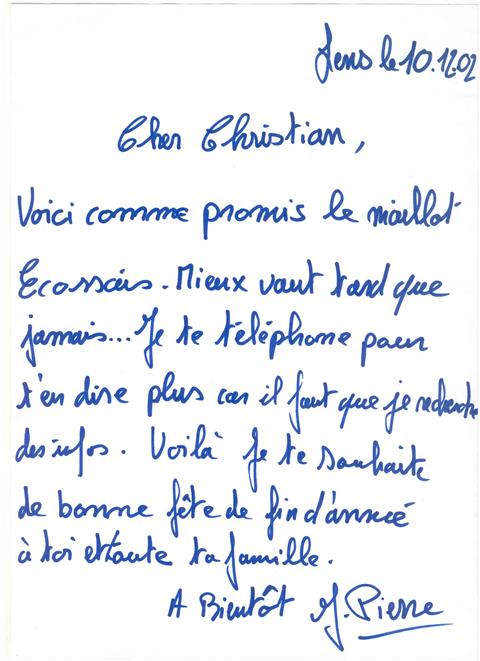 Lens le 10.12.02
Cher Christian,
Voici comme promis le maillot
Ecossais. Mieux vaut tard que
jamais... Je te téléphone pour
t'en dire plus car il faut que je recherche
des infos. Voilà je te souhaite
de bonne fête de fin d'année
à toi et toute ta famille.
A Bientôt J. Pierre